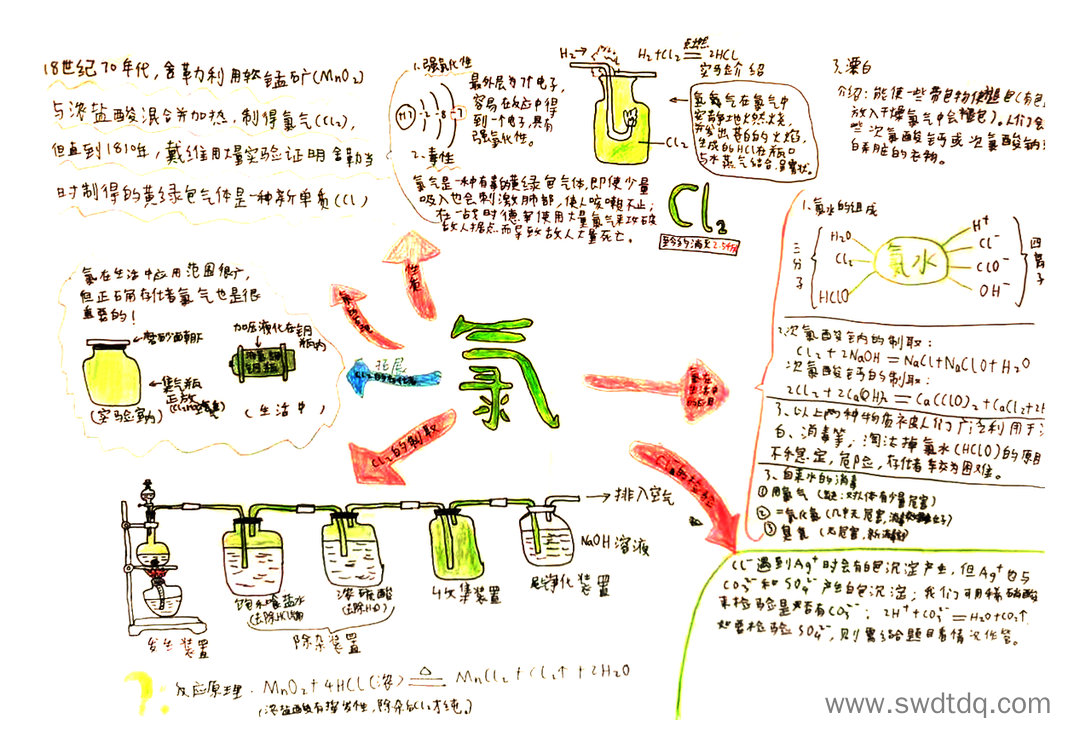 18世纪70年代,舍勒利用软锰矿(MnO₂)
与浓盐酸混合并加热,制得氯气(Cl₂),
但直到1810年,戴维用大量实验证明舍勒当
时制得的黄绿色气体是一种新单质(Cl)
1.强氧化性
最外层为7个电子,
容易在反应中得
到一个电子,具有
强氧化性。
2.毒性
氯气是一种有毒的黄绿色气体,即使少量
吸入也会刺激肺部,使人咳嗽不止;
在一战时德军使用大量氯气来攻破
敌人据点而导致敌人大量死亡。
H₂→
H₂+Cl₂ 点燃 2HCl
实验介绍
氢气在氯气中
安静地火然火烧,
并发出苍白的火焰,
生成的HCl在瓶口
与水蒸气结合,呈雾状。
Cl₂
Cl₂
3.漂白
介绍:能使一些带色物使褪色(有色
放入干燥氯气中会褪色)。人们会
些次氯酸钙或次氯酸钠
的衣物。
1.氯水的组成
三分子
H₂O
Cl₂
HClO
氯水
H⁺
Cl⁻
ClO⁻
OH⁻
四离子
2.次氯酸钠的制取:
Cl₂+2NaOH=NaCl+NaClO+H₂O
次氯酸钙的制取:
3、以上两种物质被人们广泛利用于
白、消毒等,淘汰掉氯水(HClO)的原因
不稳定,危险,存储较为困难。
3、自来水的消毒
①用氯气
②二氧化氯
③臭氧
氯在生活中应用范围很广,
但正确存储氯气也是很
重要的!
加压液化在钢
瓶内
集气瓶
正放
(实验室内)
(生活中)
性质
拓展
氯
氯在
生活中
的应用
Cl₂的制取
Cl₂的检验
排入空气
NaOH溶液
饱和食盐水
(去除HCl)
浓硫酸
(去除H₂O)
收集装置
尾净化装置
发生装置
除杂装置
?:反应原理.MnO₂+4HCl(浓) △ MnCl₂+Cl₂↑+2H₂O
(浓盐酸有挥发性,除杂后Cl₂才纯。)
Cl⁻遇到Ag⁺时会有白色沉淀产生,但Ag⁺也与
CO₃²⁻和SO₄²⁻产生白色沉淀;我们可用稀硝酸
来检验是否有CO₃²⁻:2H⁺+CO₃²⁻=H₂O+CO₂↑
如要检验SO₄²⁻,则需给题目看情况作答。
www.swdtdq.com